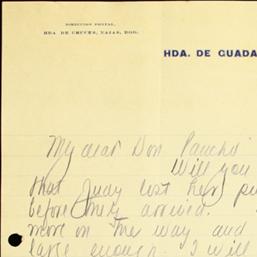 DIRECCION POSTAL,
HDA DE CRUCES, NAZAS, DGO.
HDA. DE GUADA
My dear Don Pancho
Will you
that Judy lost her pu
before they arrived.
more on the way and
large enough. I will